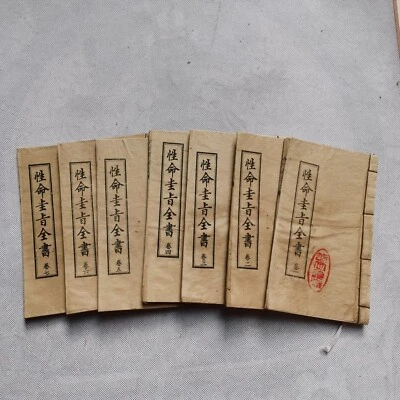 性命圭旨全書 卷一
性命圭旨全書 卷二
性命圭旨全書 卷三
性命圭旨全書 卷四
性命圭旨全書 卷五
性命圭旨全書 卷六
性命圭旨全書 卷